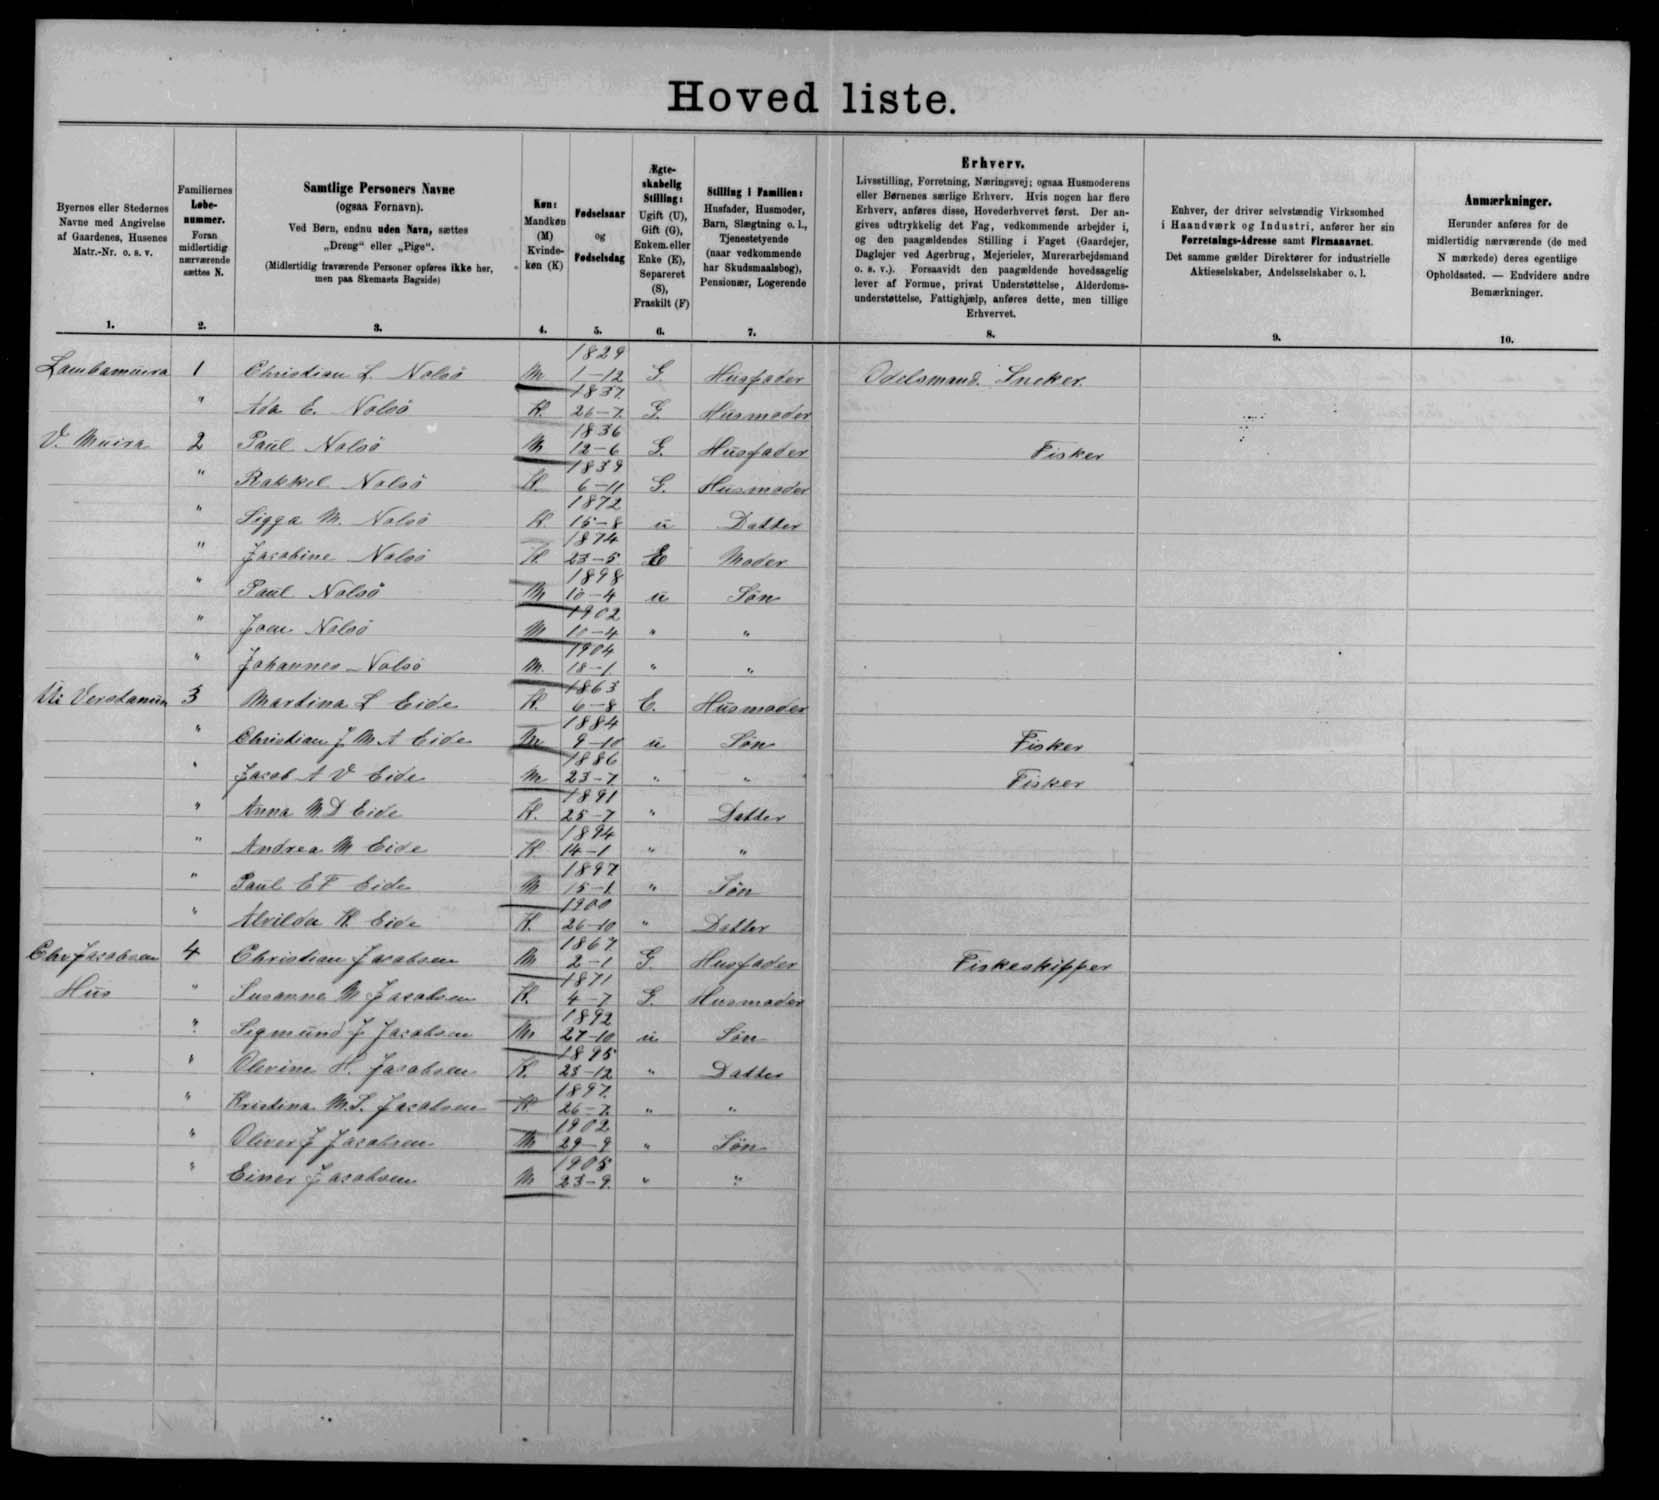 Hoved liste.
Byernes eller Stedernes
Navne med Angivelse
af Gaardenes, Husenes
Matr.-Nr. o. s. v.
1.
Familiernes
Løbe-
nummer.
Foran
midlertidig
nærværende
sættes N.
2.
Samtlige Personers Navne
(ogsaa Fornavn).
Ved Børn, endnu uden Navn, sættes
„Dreng“ eller „Pige“.
(Midlertidig fraværende Personer opføres ikke her,
men paa Skemaets Bagside)
3.
Køn:
Mandkøn
(M)
Kvinde-
køn (K)
4.
Fødselsaar
og
Fødselsdag
5.
Ægte-
skabelig
Stilling:
Ugift (U),
Gift (G),
Enkem. eller
Enke (E),
Separeret
(S),
Fraskilt (F)
6.
Stilling i Familien:
Husfader, Husmoder,
Barn, Slægtning o. l.,
Tjenestetyende
(naar vedkommende
har Skudsmaalsbog),
Pensionær, Logerende
7.
Erhverv.
Livsstilling, Forretning, Næringsvej; ogsaa Husmoderens
eller Børnenes særlige Erhverv. Hvis nogen har flere
Erhverv, anføres disse, Hovederhvervet først. Der an-
gives udtrykkelig det Fag, vedkommende arbejder i,
og den paagældendes Stilling i Faget (Gaardejer,
Daglejer ved Agerbrug, Mejerielev, Murerarbejdsmand
o. s. v.). Forsaavidt den paagældende hovedsagelig
lever af Formue, privat Understøttelse, Alderdoms-
understøttelse, Fattighjælp, anføres dette, men tillige
Erhvervet.
8.
Enhver, der driver selvstændig Virksomhed
i Haandværk og Industri, anfører her sin
Forretnings-Adresse samt Firmanavnet.
Det samme gælder Direktører for industrielle
Aktieselskaber, Andelsselskaber o. l.
9.
Anmærkninger.
Herunder anføres for de
midlertidig nærværende (de med
N mærkede) deres egentlige
Opholdssted. — Endvidere andre
Bemærkninger.
10.
1829
Lambamuira 1 Christian L. Nolsö M 1–12 G. Husfader Odelsmand. Sneker.
1837.
" Ada E. Nolsö K. 26–7. G. Husmoder
1836
V. Muira 2 Paul Nolsö M 12–6 G. Husfader Fisker
1839
" Rakkel Nolsö K. 6–11 G. Husmoder
1872
" Sigga M. Nolsö K 15–8 u Datter
1874
" Jacobine Nolsö K. 23–5 E Moder
1898
" Paul Nolsö M 10–4 u Søn
1902
" Joen Nolsö M 10–4 " "
1904
" Johannes Nolsö M. 18–1 " "
1863
Ui Verstamuira 3 Martina L Eide K. 6–8 E. Husmoder
1884
" Christian J M A Eide M 9–10 u Søn Fisker
1886
" Jacob A V Eide M 23–7 " " Fisker
1891
" Anna M D Eide K. 25–7 " Datter
1894
" Andrea M Eide K. 14–1 " "
1897
" Paul E F Eide M 15–1 " Søn
1900
" Alvilda K Eide K. 26–10 " Datter
1867
Chr Jacobsen 4 Christian Jacobsen M 2–1 G. Husfader Fiskeskipper
1871
Hus " Susanne M Jacobsen K. 4–7 G. Husmoder
1892
" Sigmund J Jacobsen M 27–10 u Søn
1895
" Olevine H. Jacobsen K. 23–12 " Datter
1897.
" Kristina M.S. Jacobsen K 26–7. " "
1902
" Oliver J Jacobsen M 29–9 " Søn
1905
" Einer Jacobsen M 23–9. " "